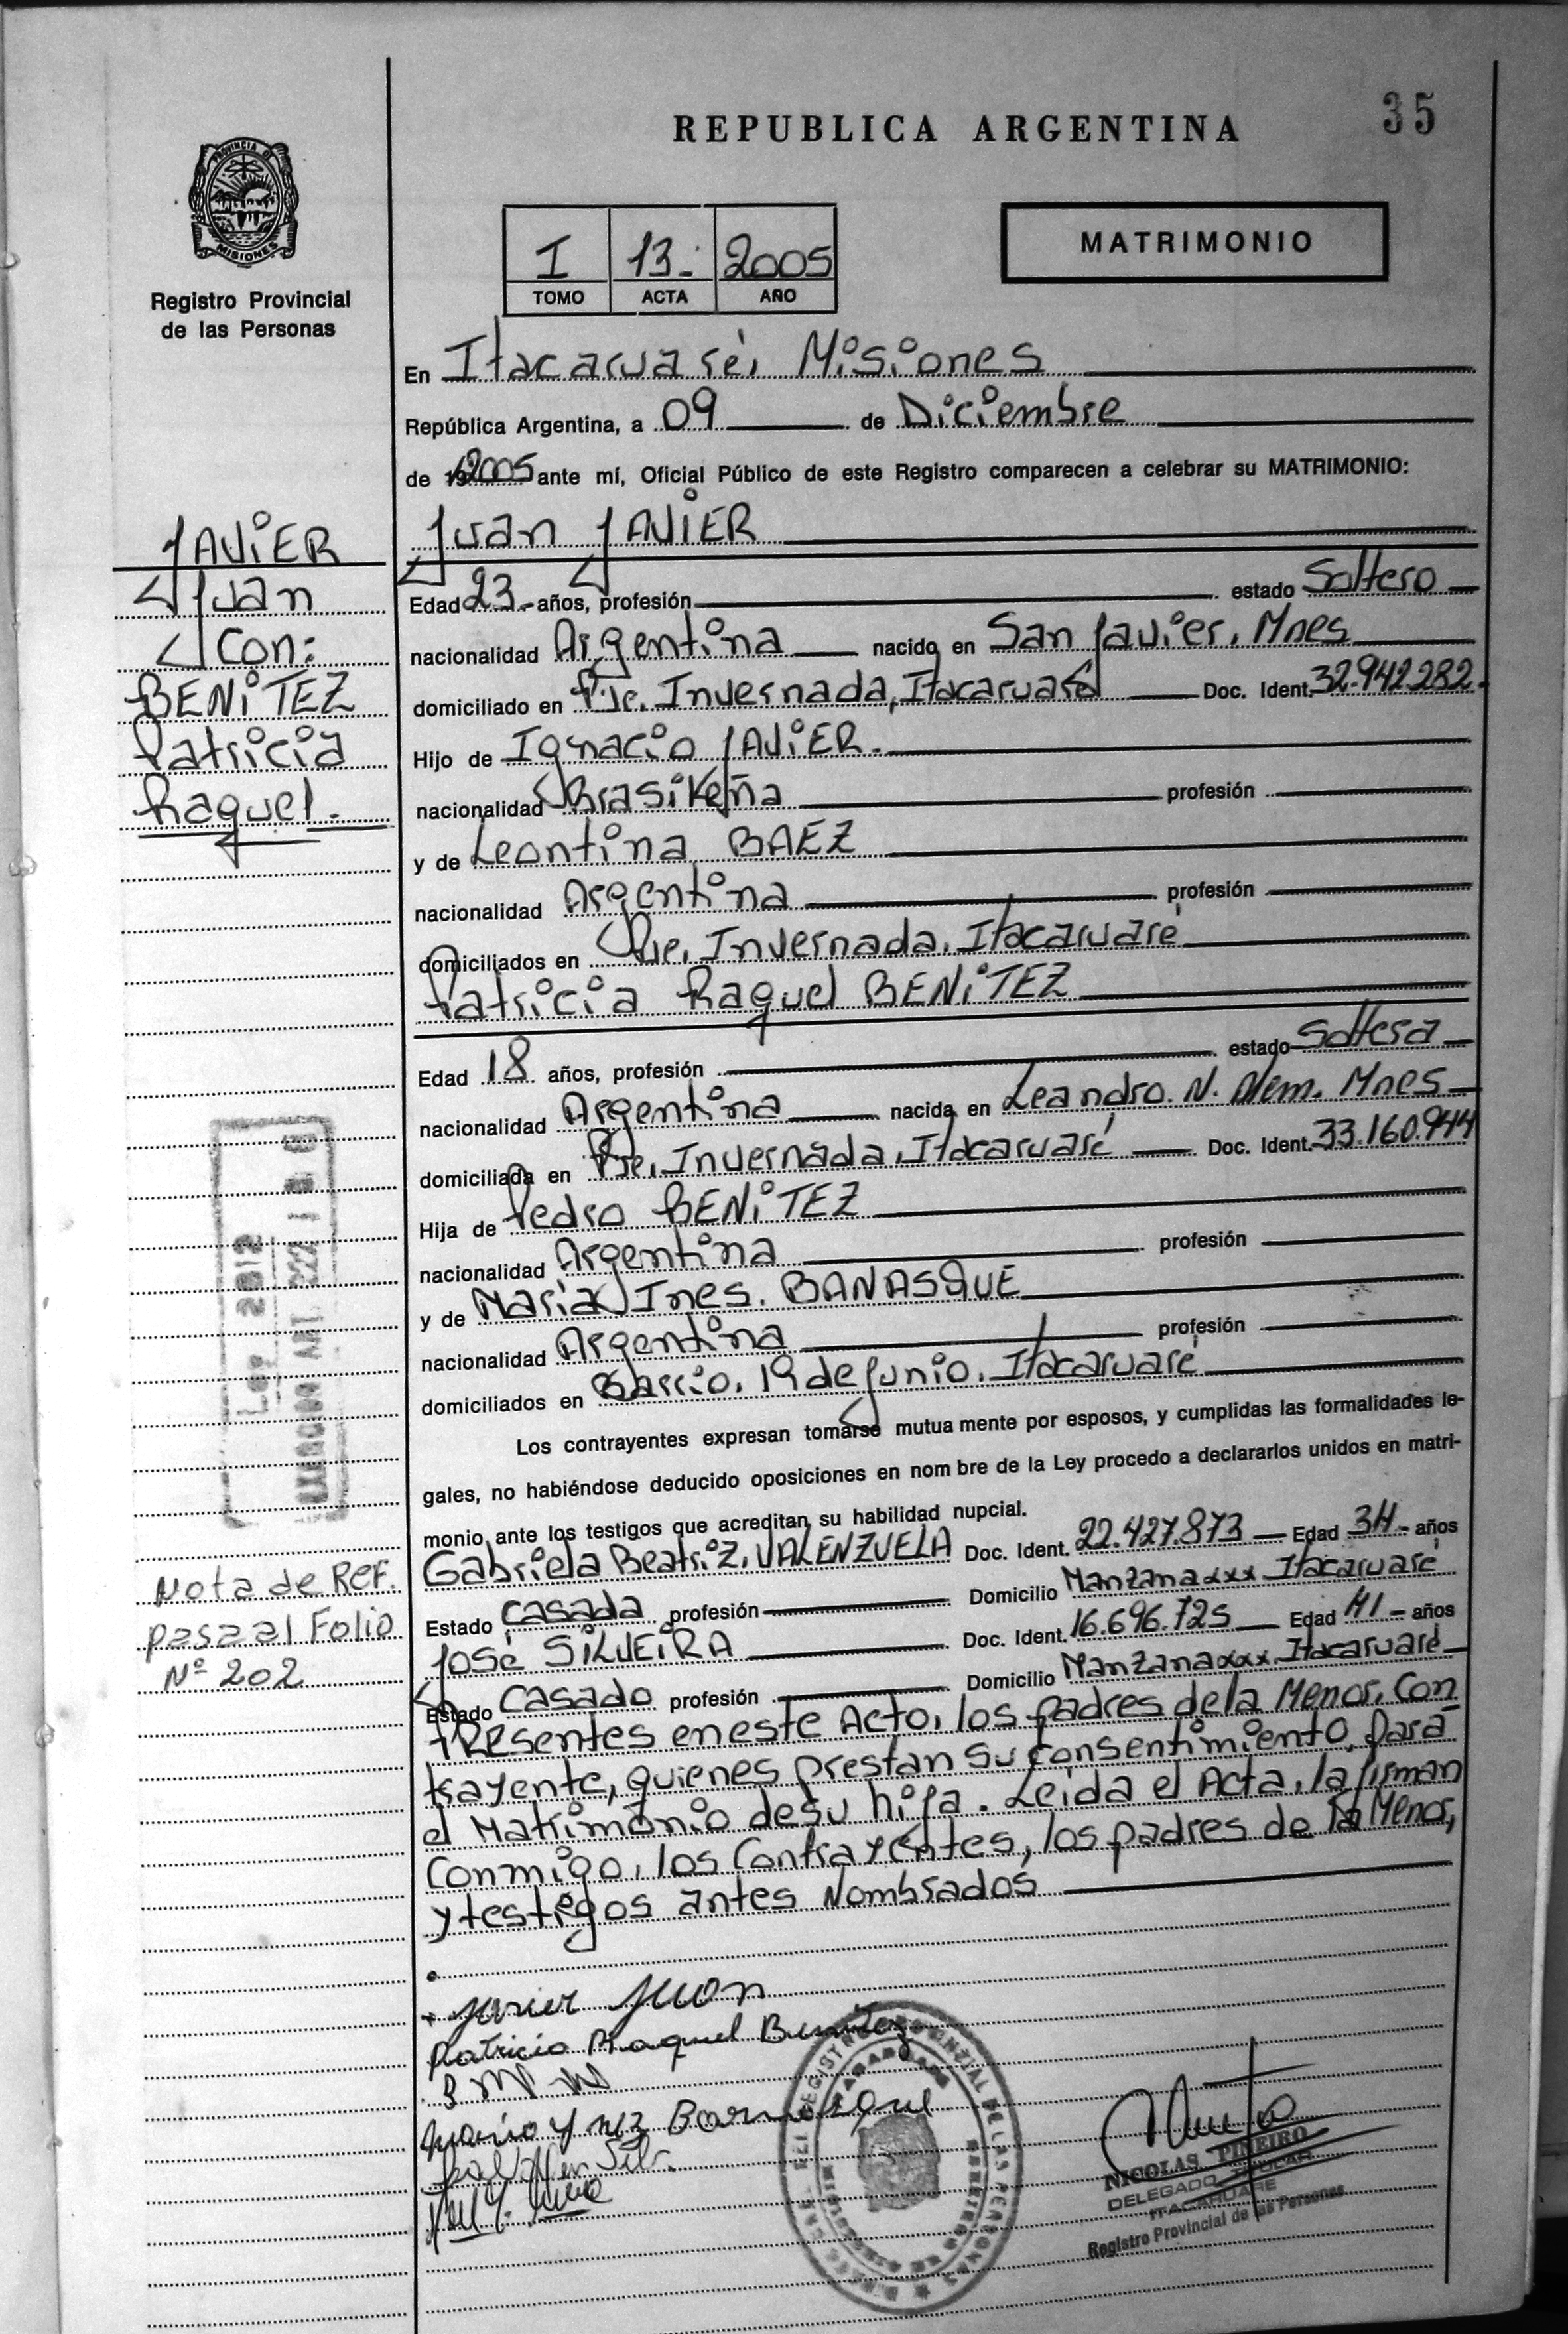 35
REPUBLICA ARGENTINA
PROVINCIA DE
MISIONES
Registro Provincial
de las Personas
I 13.- 2005
TOMO ACTA AÑO
MATRIMONIO
En Itacaruaré, Misiones
República Argentina, a 09 de Diciembre
de 19 2005 ante mí, Oficial Público de este Registro comparecen a celebrar su MATRIMONIO:
Juan JAVIER
JAVIER
Juan
Con:
BENITEZ
Patricia
Raquel.
Edad 23.- años, profesión estado Soltero
nacionalidad Argentina nacido en San Javier, Mnes
domiciliado en Pje. Invernada, Itacaruaré Doc. Ident. 32.942.282.
Hijo de Ignacio JAVIER.
nacionalidad Brasileña profesión
y de Leontina BAEZ
nacionalidad Argentina profesión
domiciliados en Pje. Invernada, Itacaruaré
Patricia Raquel BENITEZ
Edad 18 años, profesión estado Soltera
nacionalidad Argentina nacida en Leandro. N. Alem. Mnes
domiciliada en Pje. Invernada, Itacaruaré Doc. Ident. 33.160.944
Hija de Pedro BENITEZ
nacionalidad Argentina profesión
y de María Ines. BANASQUE
nacionalidad Argentina profesión
domiciliados en Barrio, 19 de Junio, Itacaruaré
Los contrayentes expresan tomarse mutua mente por esposos, y cumplidas las formalidades le-
gales, no habiéndose deducido oposiciones en nom bre de la Ley procedo a declararlos unidos en matri-
monio ante los testigos que acreditan su habilidad nupcial.
Gabriela Beatriz, VALENZUELA Doc. Ident. 22.427.873 Edad 34 - años
Estado Casada profesión Domicilio Manzana xxx Itacaruaré
José SILVEIRA Doc. Ident. 16.696.725 Edad 41 - años
Estado Casado profesión Domicilio Manzana xxx Itacaruaré
Presentes en este Acto, los padres de la Menor, Con
trayente, quienes prestan su consentimiento, para
el Matrimonio de su hija. Leida el Acta, la firman
Conmigo, los Contrayentes, los padres de la Menor,
y testigos antes Nombrados
Nota de REF.
pasa al Folio
Nº 202
Javier Juan
Patricia Raquel Benitez
NICOLAS PIÑEIRO
DELEGADO TITULAR
ITACARUARE
Registro Provincial de las Personas